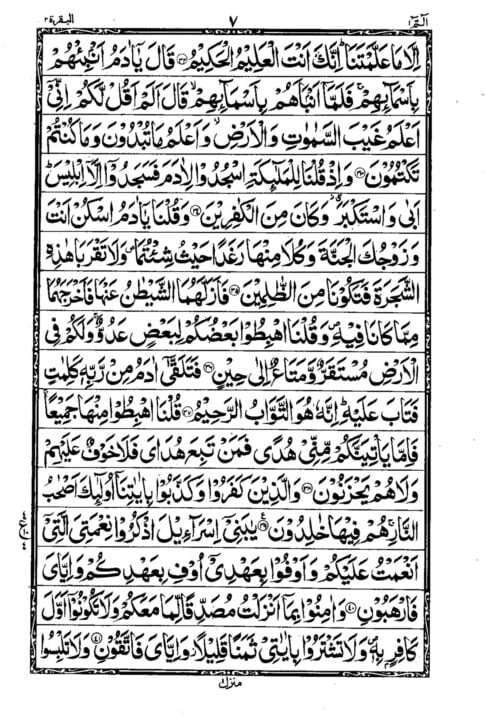 البقرة ٢
٧
الٓمّٓ ١
اِلَّا مَا عَلَّمْتَنَا ؕ اِنَّكَ اَنْتَ الْعَلِيْمُ الْحَكِيْمُ ﴿۳۲﴾ قَالَ يٰۤاٰدَمُ اَنْۢبِئْهُمْ
بِاَسْمَآئِهِمْ ۚ فَلَمَّاۤ اَنْۢبَاَهُمْ بِاَسْمَآئِهِمْ ۙ قَالَ اَلَمْ اَقُلْ لَّكُمْ اِنِّیْۤ
اَعْلَمُ غَيْبَ السَّمٰوٰتِ وَالْاَرْضِ ۙ وَاَعْلَمُ مَا تُبْدُوْنَ وَمَا كُنْتُمْ
تَكْتُمُوْنَ ﴿۳۳﴾ وَاِذْ قُلْنَا لِلْمَلٰٓئِكَةِ اسْجُدُوْا لِاٰدَمَ فَسَجَدُوْۤا اِلَّاۤ اِبْلِيْسَ ؕ
اَبٰى وَاسْتَكْبَرَ ٭ وَكَانَ مِنَ الْكٰفِرِيْنَ ﴿۳۴﴾ وَقُلْنَا يٰۤاٰدَمُ اسْكُنْ اَنْتَ
وَزَوْجُكَ الْجَنَّةَ وَكُلَا مِنْهَا رَغَدًا حَيْثُ شِئْتُمَا ۪ وَلَا تَقْرَبَا هٰذِهِ
الشَّجَرَةَ فَتَكُوْنَا مِنَ الظّٰلِمِيْنَ ﴿۳۵﴾ فَاَزَلَّهُمَا الشَّيْطٰنُ عَنْهَا فَاَخْرَجَهُمَا
مِمَّا كَانَا فِيْهِ ۪ وَقُلْنَا اهْبِطُوْا بَعْضُكُمْ لِبَعْضٍ عَدُوٌّ ۚ وَلَكُمْ فِی
الْاَرْضِ مُسْتَقَرٌّ وَّمَتَاعٌ اِلٰى حِيْنٍ ﴿۳۶﴾ فَتَلَقّٰۤى اٰدَمُ مِنْ رَّبِّهٖ كَلِمٰتٍ
فَتَابَ عَلَيْهِ ؕ اِنَّهٗ هُوَ التَّوَّابُ الرَّحِيْمُ ﴿۳۷﴾ قُلْنَا اهْبِطُوْا مِنْهَا جَمِيْعًا ۚ
فَاِمَّا يَاْتِيَنَّكُمْ مِّنِّیْ هُدًى فَمَنْ تَبِعَ هُدَایَ فَلَا خَوْفٌ عَلَيْهِمْ
وَلَا هُمْ يَحْزَنُوْنَ ﴿۳۸﴾ وَالَّذِيْنَ كَفَرُوْا وَكَذَّبُوْا بِاٰيٰتِنَاۤ اُولٰٓئِكَ اَصْحٰبُ
النَّارِ ۚ هُمْ فِيْهَا خٰلِدُوْنَ ﴿۳۹﴾ يٰبَنِیْۤ اِسْرَآءِيْلَ اذْكُرُوْا نِعْمَتِیَ الَّتِیْۤ
اَنْعَمْتُ عَلَيْكُمْ وَاَوْفُوْا بِعَهْدِیْۤ اُوْفِ بِعَهْدِكُمْ ۚ وَاِيَّایَ
فَارْهَبُوْنِ ﴿۴۰﴾ وَاٰمِنُوْا بِمَاۤ اَنْزَلْتُ مُصَدِّقًا لِّمَا مَعَكُمْ وَلَا تَكُوْنُوْۤا اَوَّلَ
كَافِرٍۭ بِهٖ ۪ وَلَا تَشْتَرُوْا بِاٰيٰتِیْ ثَمَنًا قَلِيْلًا ۫ وَّاِيَّایَ فَاتَّقُوْنِ ﴿۴۱﴾ وَلَا تَلْبِسُوا